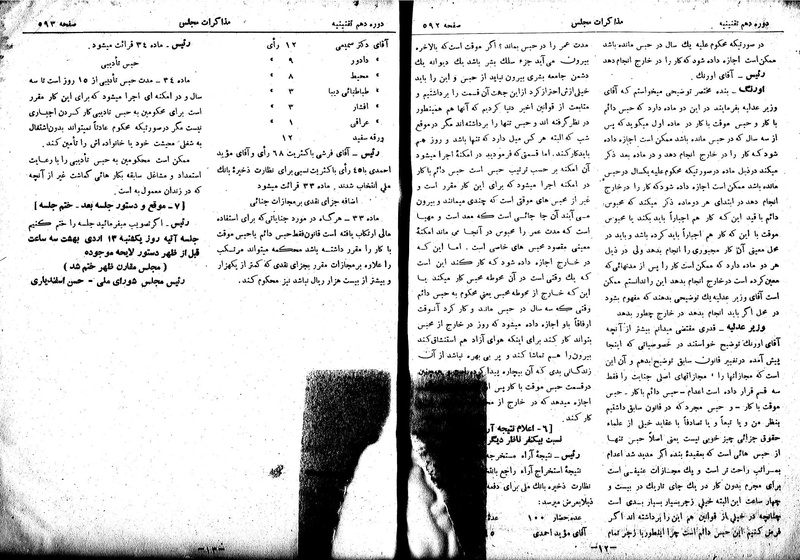 دوره دهم تقنینیه
مذاکرات مجلس
صفحه ۵۹۲
در صورتیکه محکوم علیه یك سال در حبس مانده باشد
اجازه داده شود که کار را در خارج انجام دهد
رئیس ـ آقای اورنگ.
اورنگ ـ بنده مختصر توضیحی میخواستم که آقای
وزیر عدلیه بفرمایند در این دو ماده دارد که حبس دائم
با کار و حبس موقت با کار در ماده اول میگوید که پس
از سه سال که در حبس مانده باشد ممکن است اجازه داده
شود که کار را در خارج انجام دهد و در ماده بعد ذکر
میکند در ذیل ماده در صورتیکه محکوم علیه یکسال در حبس
مانده باشد ممکن است اجازه داده شود که کار را در خارج
انجام دهد در ابتدای هر دو ماده ذکر میکند که محبوس
دائم با قید این که کار هم اجباراً باید بکند یا محبوس
موقت با این که کار هم اجباراً باید کرده باشد و باید در
محل معینی آن کار مجبوری را انجام بدهد ولی در ذیل
هر دو ماده دارد که ممکن است کار را پس از مدتهائی که
معین کرده است در خارج انجام بدهد این را ندانستم ممکن
است آقای وزیر عدلیه یك توضیحی بدهند که مفهوم بشود
در محل اگر باید انجام بدهد در خارج چطور بدهد
وزیر عدلیه ـ قدری مقتضی میدانم بیشتر از آنچه
آقای اورنگ توضیح خواستند در خصوصیاتی که اینجا
پیش آمده در تغییر قانون سابق توضیح بدهم و آن این
است که مجازاتها را ، مجازاتهای اصلی جنایت را فقط
سه قسم قرار داده است اعدام ـ حبس دائم با کار ـ حبس
موقت با کار ـ و حبس مجرد که در قانون سابق داشتیم
بنظر من و یا تبعاً و یا تصادفاً با عقاید خیلی از علماء
حقوق جزائی چیز خوبی نیست یعنی اصلا حبس تنها
از حبس هائی است که بعقیدهٔ بنده اگر مدید شد اعدام
بمراتب راحت تر است و یك مجازات عنیفی است
برای مجرم بدون کار در یك جای تاریك در بیست و
چهار ساعت این البته خیلی زجر بسیار بسیار بدی است
چنانچه در خیلی از قوانین هم این را برداشته اند اگر
فرض کنیم این حبس دائم است چرا اینطور با زجر تمام
ـ ۱۲ ـ
مدت عمر را در حبس بماند ؟ اگر موقت است که بالاخره
بیرون می‌آید جزء سلك بشر باشد یك دیوانه یك
دشمن جامعه بشری بیرون نیاید از حبس و این را باید
خیلی ازش احتراز کرد از این جهت آن قسمت را برداشتیم و
متابعت از قوانین اخیر دنیا کردیم که آنها هم همینطور
در نظر گرفته اند و حبس تنها را برداشته اند مگر در موقع
شب که البته هر کس میل دارد که تنها باشد و روز هم
باید کار بکند. اما قسمتی که فرمودید در امکنهٔ اجرا میشود
آن امکنه بر حسب ترتیب حبس است حبس دائم با کار
در امکنه اجرا میشود که برای این کار مقرر است و
غیر از محبس های موقتی است که چندی میمانند و بیرون
می آیند آن جا جائی است که معد است و مهیا
است که مدت عمر را محبوس در آنجا می ماند امکنهٔ
معینی مقصود محبس های خاصی است . اما این که
در خارج اجازه داده شود که کار کنند این است
که یك وقتی است در آن محوطه محبس کار میکند یا
این که خارج از محوطه محبس یعنی محکوم به حبس دائم
وقتی که سه سال در حبس ماند و کار کرد آنوقت
ارفاقاً باو اجازه داده میشود که روز در خارج از محبس
بتواند کار کند برای اینکه هوای آزاد هم استنشاق کند
بیرون را هم تماشا کند و پر بی بهره نباشد از آن
زندگانی بدی که آن بیچاره پیدا
در قسمت حبس موقت با کار پس
اجازه میدهد که در خارج از
کار کند.
[ ۶ ـ اعلام نتیجه آر
نسبت بیکنفر ناظر دیگر
رئیس ـ نتیجهٔ آراء مستخرجه
نتیجهٔ استخراج آراء راجع بانتخا
نظارت ذخیره بانك ملی برای دفعه
قبلا بعرض میرسد:
عده حضار ۱۰۰
آقای مؤید احمدی
دوره دهم تقنینیه
مذاکرات مجلس
صفحه ۵۹۳
آقای دکتر سمیعی ۱۲ رأی
» دادور ۹ »
» محیط ۸ »
» طباطبائی دیبا ۳ »
» افشار ۳ »
» عراقی ۱ »
ورقه سفید ۱۲
رئیس ـ آقای فرشی باکثریت ۶۸ رأی و آقای مؤید
احمدی با ۴۵ رأی باکثریت نسبی برای نظارت ذخیرهٔ بانك
ملی انتخاب شدند . ماده ۳۳ قرائت میشود
اضافه جزای نقدی بمجازات جنائی
ماده ۳۳ ـ هرگاه در مورد جنایاتی که برای استفاده
مالی ارتکاب یافته است قانون فقط حبس دائم یا حبس موقت
با کار را مقرر داشته باشد محکمه میتواند مرتکب
را علاوه بر مجازات مقرر بجزای نقدی که کمتر از یکهزار
و بیشتر از بیست هزار ریال نباشد نیز محکوم کند.
رئیس ـ ماده ۳٤ قرائت میشود.
حبس تأدیبی
ماده ۳٤ ـ مدت حبس تأدیبی از ۱۵ روز است تا سه
سال و در امکنه ای اجرا میشود که برای این کار مقرر
است برای محکومین به حبس تأدیبی کار کردن اجباری
نیست مگر در صورتیکه محکوم عادتاً نمیتواند بدون اشتغال
به شغلی معیشت خود یا خانواده اش را تأمین کند.
ممکن است محکومین به حبس تأدیبی را با رعایت
استعداد و مشاغل سابقه بکار هائی گماشت غیر از آنچه
که در زندان معمول به است.
[ ۷ ـ موقع و دستور جلسه بعد ـ ختم جلسه ]
رئیس ـ اگر تصویب میفرمائید جلسه را ختم کنیم
جلسه آتیه روز یکشنبه ۱۳ اردی بهشت سه ساعت
قبل از ظهر دستور لایحه موجوده
( مجلس مقارن ظهر ختم شد )
رئیس مجلس شورای ملی ـ حسن اسفندیاری
ـ ۱۳ ـ